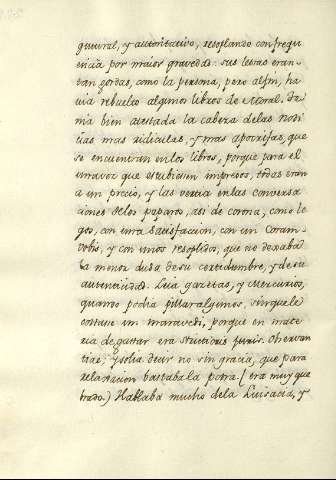 general, y autoritativo, resoplando con frequ
encia por maior gravedad: sus letras eran
tan gordas, como la persona, pero alfin, ha
via rebuelto algunos libros de Moral. Te
nia bien atestada la cabeza delas noti
cias mas ridiculas, y mas apocrifas, que
se encuentran enlos libros, porque para el
una vez que estubiesen impresos, todas eran
a un precio, y las vertia enlas conversa
ciones delos paparos, asi de corona, como le
gos, con tanta satisfacción, con un Coram
vobis, y con unos resoplidos, que no dexaba
la menor duda de su certidumbre, y de su
autenticidad. Leia gazetas, y Mercurios,
quando podia pillar algunos, sin que le
costase un maravedi, porque en mate
ria de gastar era strictioris juris. Observan
tiae; y solia decir no sin gracia, que para
relaxacion bastaba la potra. (era muy que
brado.) Hablaba mucho dela Luisiada, y